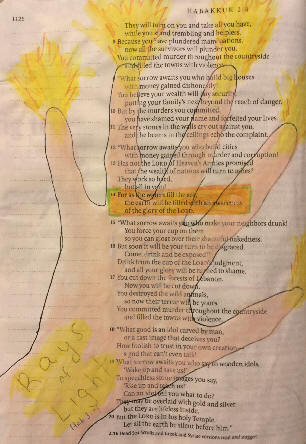 1125
HABAKKUK 2
They will turn on you and take all you have,
while you stand trembling and helpless.
8 Because you have plundered many nations,
now all the survivors will plunder you.
You committed murder throughout the countryside
and filled the towns with violence.
9 "What sorrow awaits you who build big houses
with money gained dishonestly!
You believe your wealth will buy security,
putting your family's nest beyond the reach of danger.
10 But by the murders you committed,
you have shamed your name and forfeited your lives.
11 The very stones in the walls cry out against you,
and the beams in the ceilings echo the complaint.
12 "What sorrow awaits you who build cities
with money gained through murder and corruption!
13 Has not the LORD of Heaven's Armies promised
that the wealth of nations will turn to ashes?
They work so hard,
but all in vain!
14 For as the waters fill the sea,
the earth will be filled with an awareness
of the glory of the LORD.
15 "What sorrow awaits you who make your neighbors drunk!
You force your cup on them
so you can gloat over their shameful nakedness.
16 But soon it will be your turn to be disgraced.
Come, drink and be exposed!
Drink from the cup of the LORD's judgment,
and all your glory will be turned to shame.
17 You cut down the forests of Lebanon.
Now you will be cut down.
You destroyed the wild animals,
so now their terror will be yours.
You committed murder throughout the countryside
and filled the towns with violence.
18 "What good is an idol carved by man,
or a cast image that deceives you?
How foolish to trust in your own creation—
a god that can't even talk!
19 What sorrow awaits you who say to wooden idols,
'Wake up and save us!'
To speechless stone images you say,
'Rise up and teach us!'
Can an idol tell you what to do?
They may be overlaid with gold and silver,
but they are lifeless inside.
20 But the LORD is in his holy Temple.
Let all the earth be silent before him."
Rays
of
Light